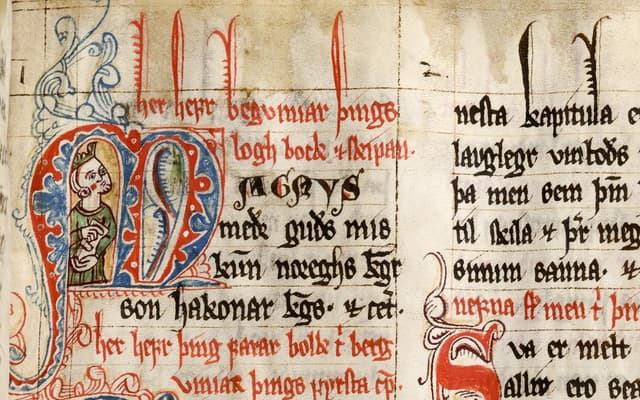 her hefr beguiniar þings
logh bock ⁊ skipan.
MAGNVS
með guds mis
kun̄ noreghs kgr̄
son hakonar kḡs. ⁊ cet.
her hefr þing farar bolk t̄ berg
uiniar þings fyrsta cp̄.
nesta kapitula e
lauglegr
þa men sem þm̄
til skila ⁊ þr̄ meg
sinum sauna. ⁊
nefna sk̄ men t̄ þin
Sva er melt
allir ero sea